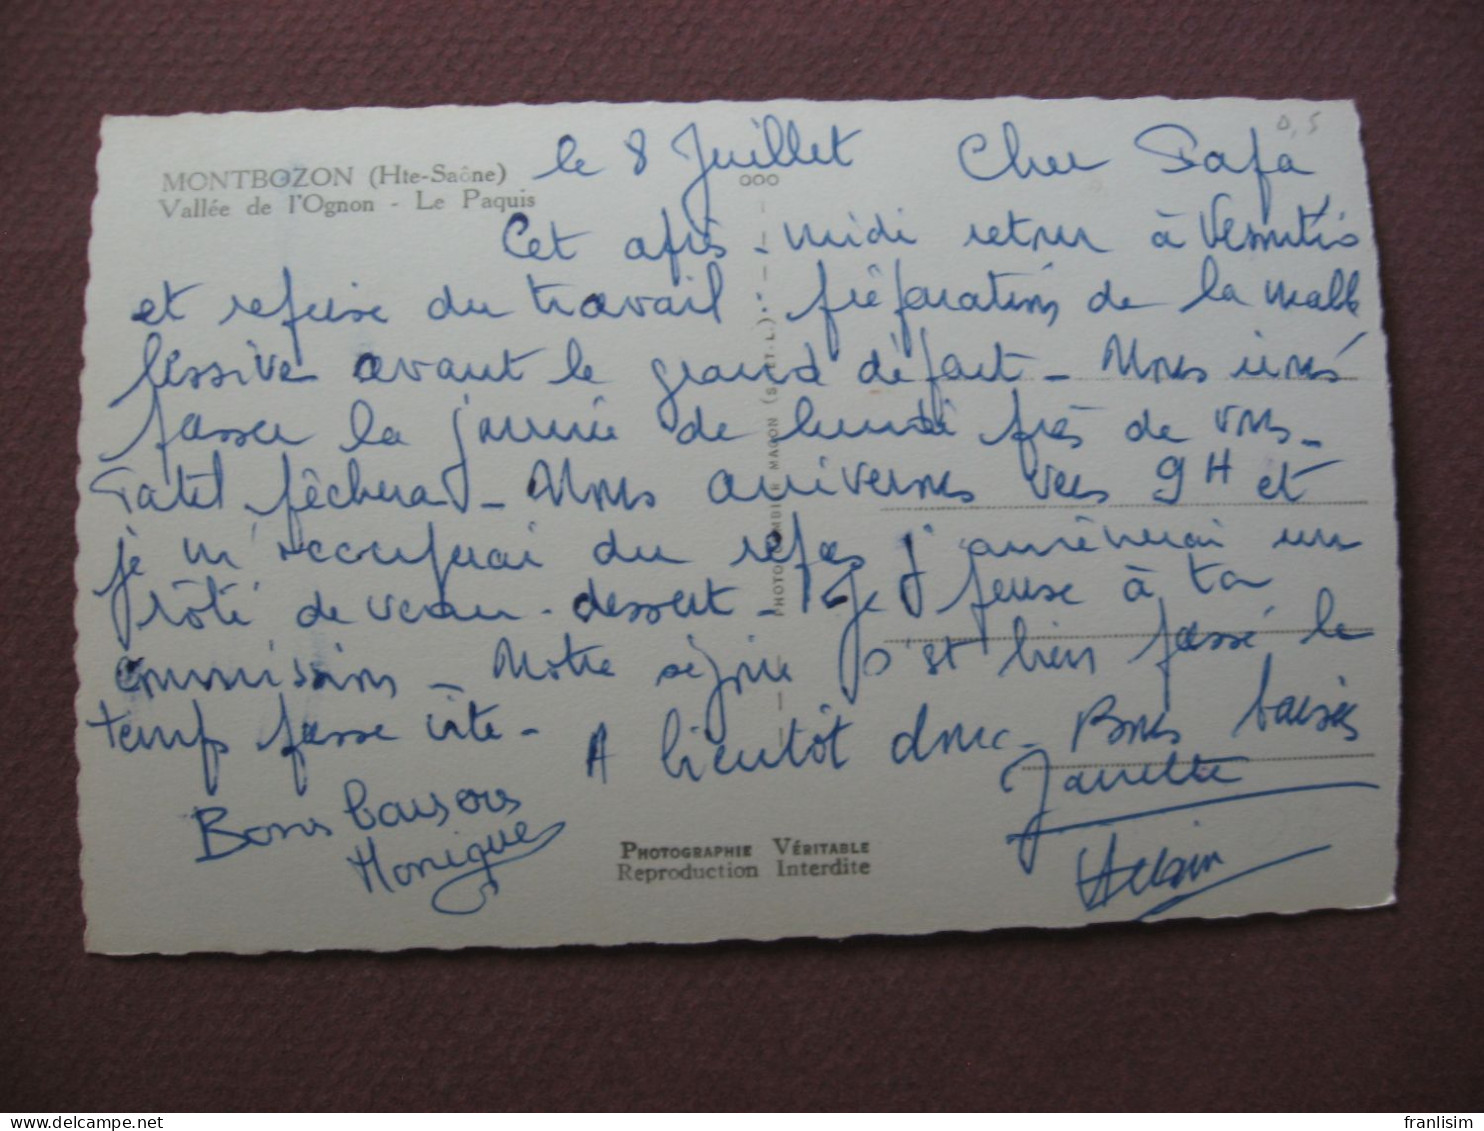 0,5
MONTBOZON (Hte-Saône)
Vallée de l'Ognon - Le Paquis
le 8 Juillet Cher Papa
Cet après-midi retour à
et reprise du travail : préparations de la malle
lessive avant le grand départ - Nous irons
passer la journée de lundi près de vous -
pêchera - Nous arriverons vers 9H et
je m'occuperai du repas j'amènerai un
rôti de veau - dessert - Je pense à ta
commission - Notre séjour s'est bien passé le
temps passe vite -
A bientôt donc - Bons baisers
Janette
Alain
Bons baisers
Monique
PHOTOGRAPHIE VÉRITABLE
Reproduction Interdite
COMBIER MACON (S.-ET-L.)
franlisim